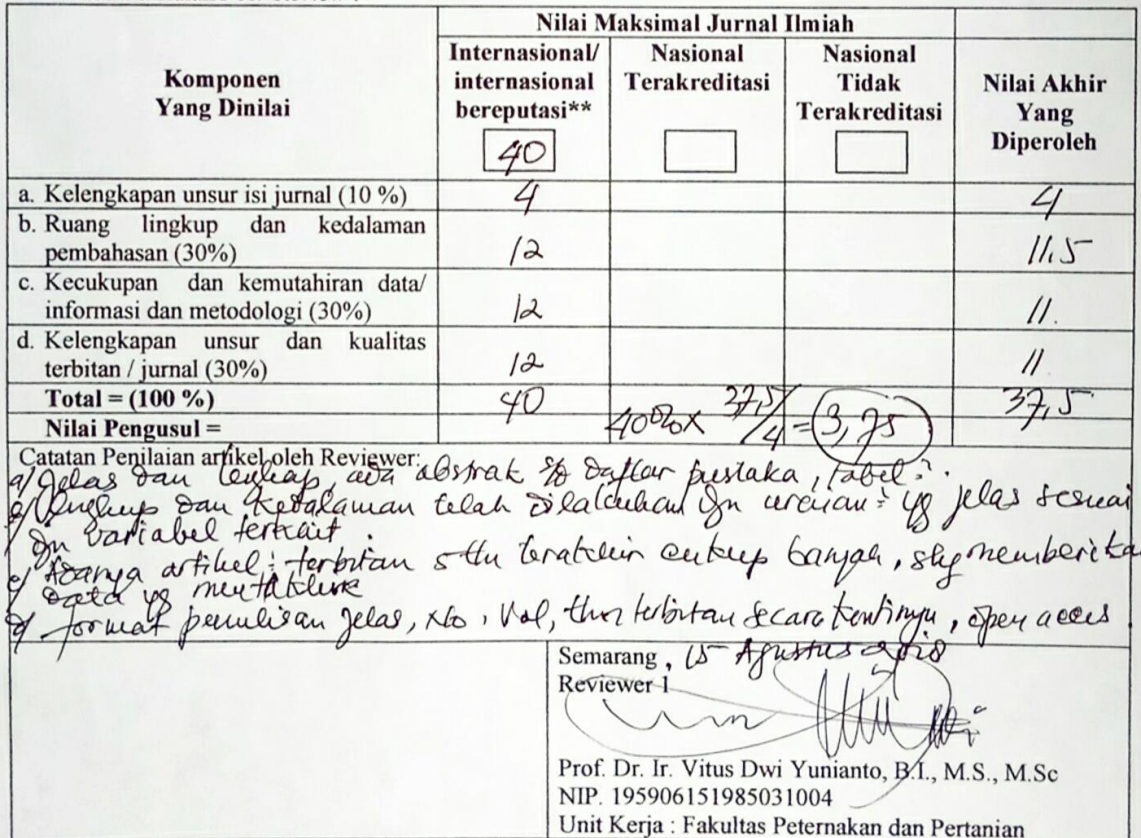 Nilai Maksimal Jurnal Ilmiah
Komponen
Yang Dinilai
Internasional/
internasional
bereputasi**
40
Nasional
Terakreditasi
Nasional
Tidak
Terakreditasi
Nilai Akhir
Yang
Diperoleh
a. Kelengkapan unsur isi jurnal (10 %) 4 4
b. Ruang lingkup dan kedalaman
pembahasan (30%) 12 11.5
c. Kecukupan dan kemutahiran data/
informasi dan metodologi (30%) 12 11.
d. Kelengkapan unsur dan kualitas
terbitan / jurnal (30%) 12 11
Total = (100 %) 40 37,5
Nilai Pengusul = 40% x 37,5/4 = 3,75
Catatan Penilaian artikel oleh Reviewer:
a) Jelas dan lengkap, ada abstrak daftar pustaka, tabel
dan kedalaman telah dilakukan dgn yg jelas sesuai
dgn variabel terkait.
c) Adanya artikel terbitan 5 thn terakhir cukup banyak, shg memberika
data yg
d) format penulisan jelas, No, Vol, thn terbitan secara, open acces
Semarang, 15 Agustus 2018
Reviewer 1
Prof. Dr. Ir. Vitus Dwi Yunianto, B.I., M.S., M.Sc
NIP. 195906151985031004
Unit Kerja : Fakultas Peternakan dan Pertanian